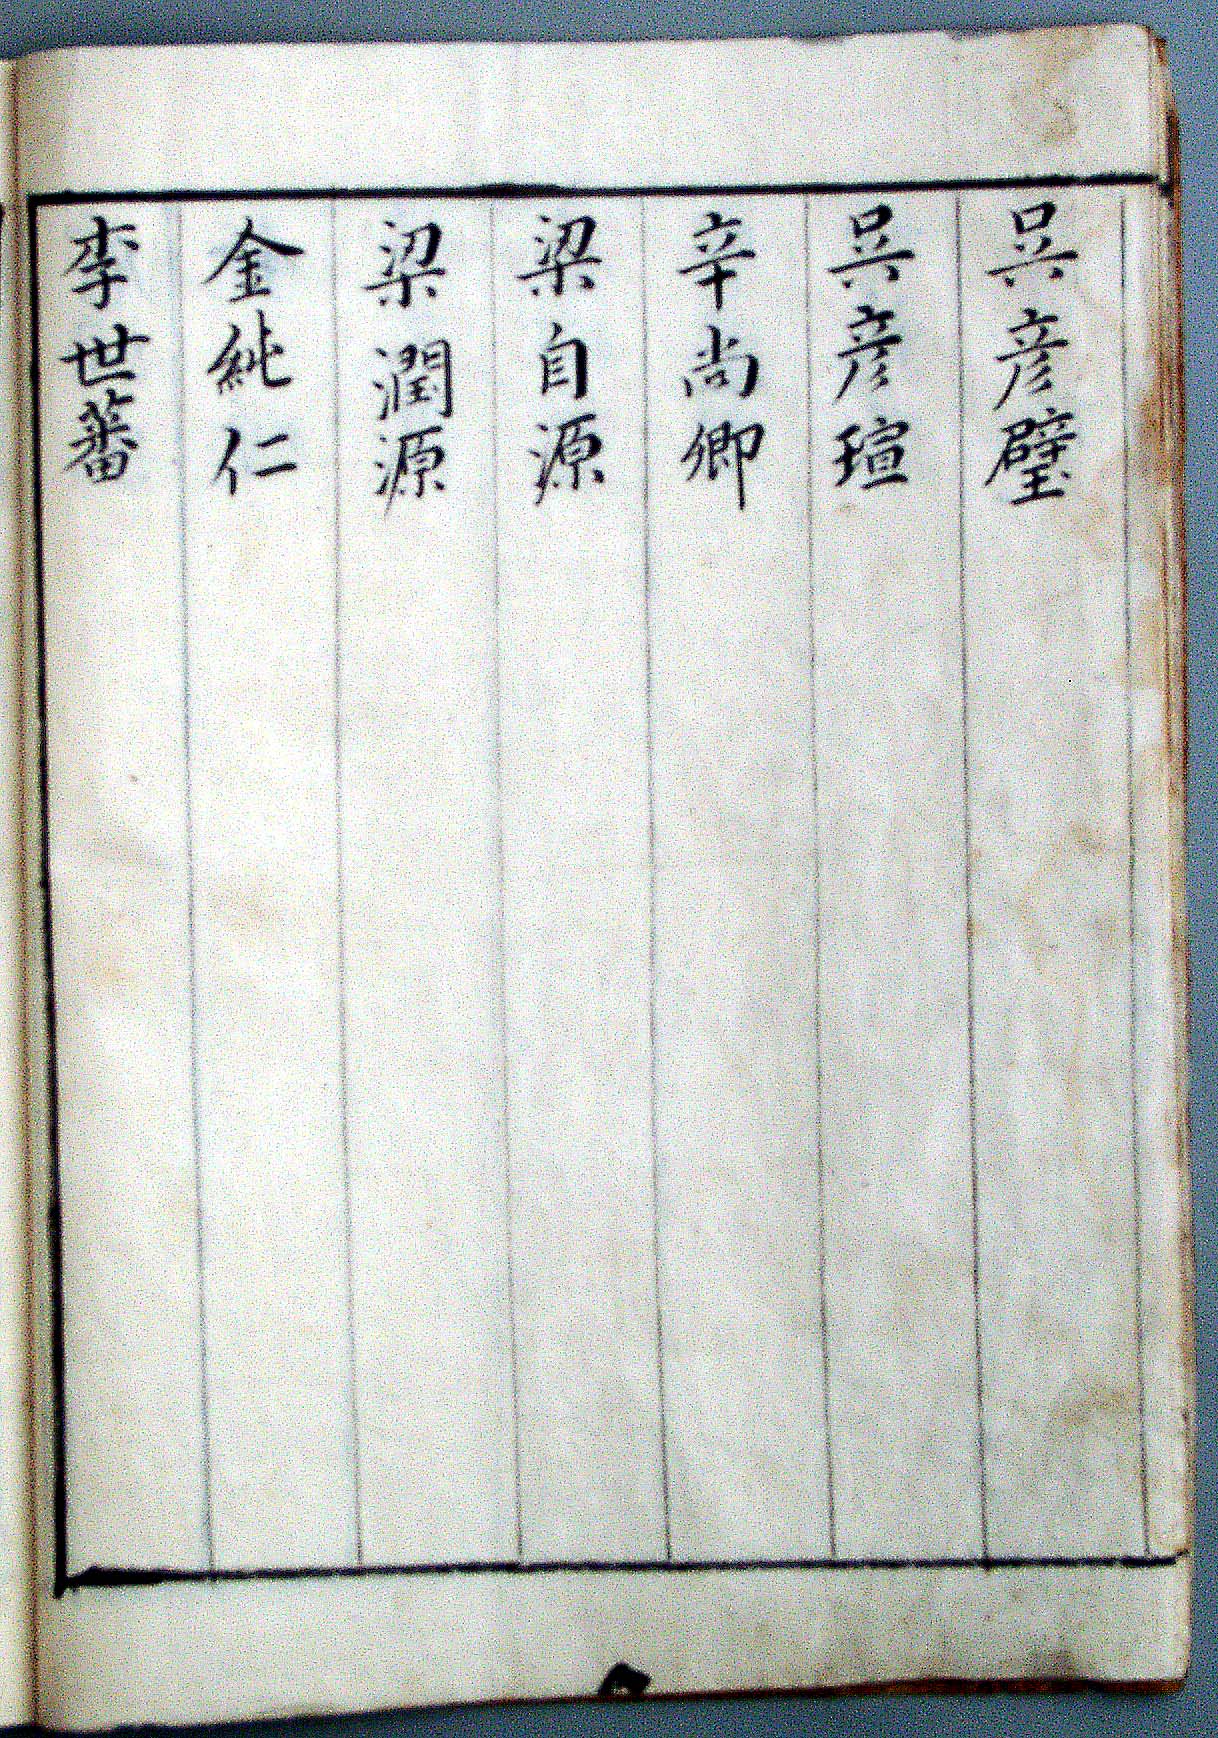 吳彦璧
吳彦瑄
辛尚卿
梁自源
梁潤源
金純仁
李世蕃